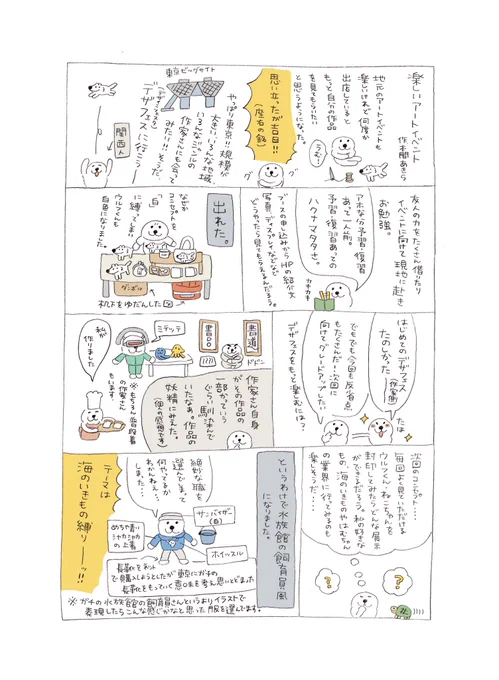 楽しいアートイベント
作 本間あきら
地元のアートイベントも
楽しいけれど何度か
出店していると
もっと自分の作品
を見てもらいたい
と思うようになった。
うむ…
思い立ったが吉日!!
(座右の銘)
グ
グ
東京ビッグサイト
やっぱり東京!!規模が
大きい!いろんな地域、
いろんなジャンルの
作家さんにも会って
みたい!!そうだ、
デザフェスに行こう。
(デザインフェスタ)
関西人
友人の力をたくさん借りたり
イベントに向けて現地に赴き
お勉強。
アホな分予習・復習
あって一人前。
予習・復習あっての
ハクナマタタさ。
カキカキ
ブースの申し込みからHPの紹介文
写真、ディスプレイなどなど
どうやったら見てもらえるんだろう。
出れた。
なぜか
コンセプトを
「白」
に縛ってしまい
ウルフくんも
白色になりました。
ダンボール
机下をゆだんした図
はじめてのデザフェス
たのしかった
(作家側)
たは
でもでも今回も反省点
もたくさんだ!次回に
向けてグレードアップしたい
デザフェスをもっと楽しむには?
書道へ
書〇〇
ドドン
作家さん自身
がその作品の
一部かっていう
ぐらい馴じんで
いたなぁ。作品の
妖精にみえた。
(個人の感想です)
ミテッテ
私が
作りました
※もちろん普段着
の作家さん
もいます。
次回のコンセプト…
毎回よく見ていただける
ウルフくん、ねこちゃんを
封印してみたらどんな展示
ができるだろう。私の好きな
もの、海のいきものやはむちゃん
の業界に行ってみるのも
楽しそうだ…
?
?
というわけで水族館の飼育員風
になりました。
絶妙な職を
選んでしまって
何やってるか
わかんねえ…
しました。
サンバイザー
(白)
めちゃ青い
シャカシャカ
の上着
ホイッスル
長靴をネット
で購入しようとしたが東京にガチの
長靴をもっていく意味を考え思いとどまった
テーマは
海のいきもの縛りーッ!!
※ガチの水族館の飼育員さんというよりイラストで
表現したらこんな感じかなと思った服を選んでます。